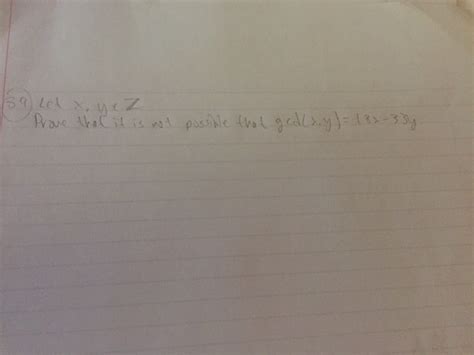 59) Let x, y ∈ ℤ
Prove that it is not possible that gcd(x,y)=18x-33y